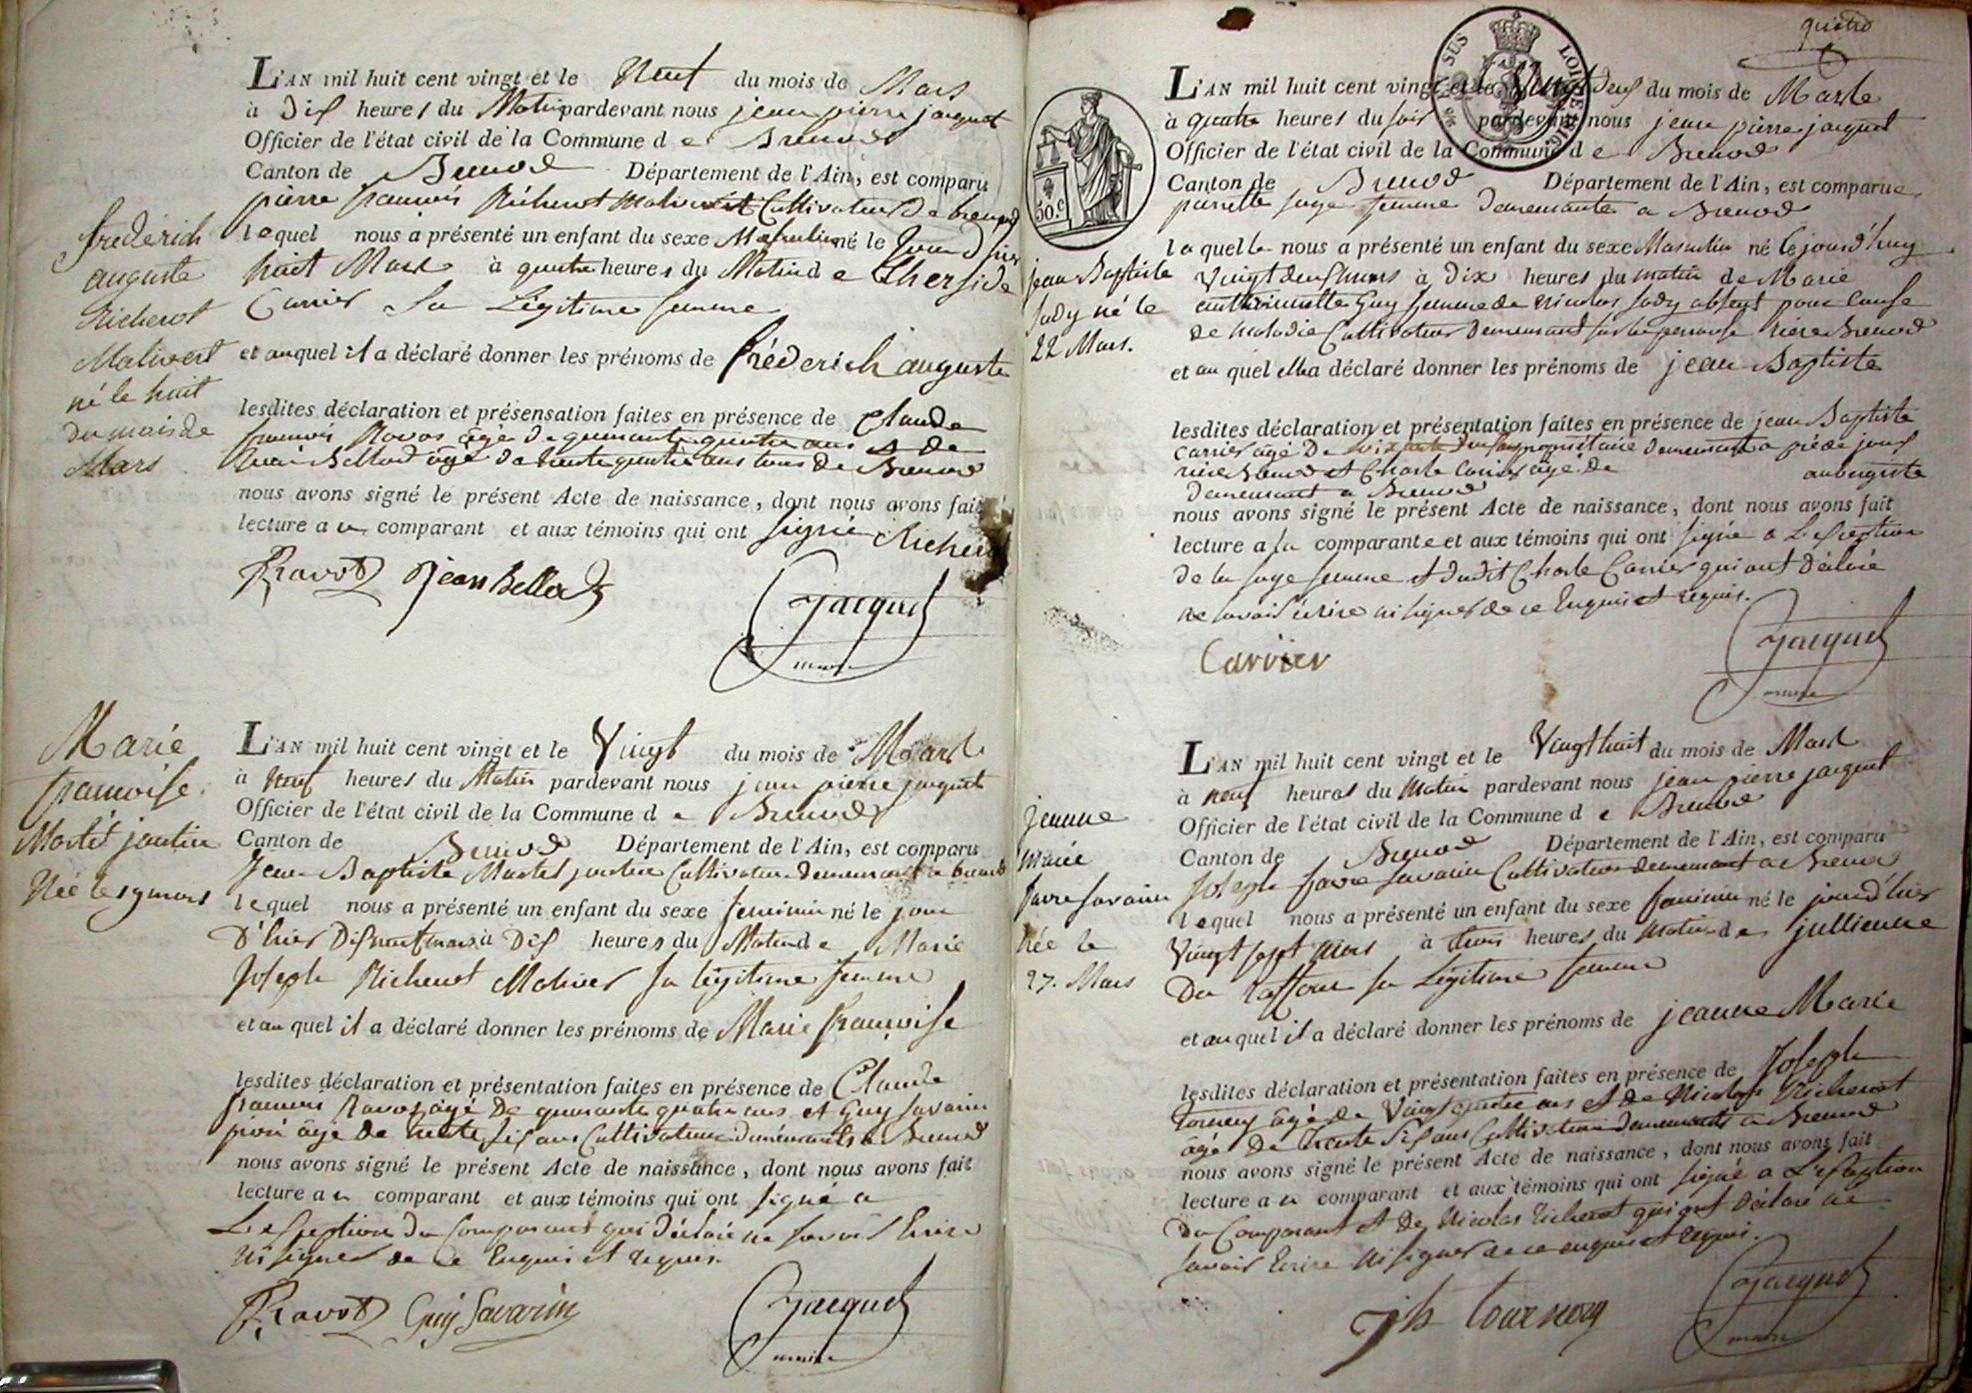 L'AN mil huit cent vingt et le Neuf du mois de Mars
à Dix heures du Matin pardevant nous jean pierre jacquet
Officier de l'état civil de la Commune d e Brenod
Canton de Brenod Département de l'Ain, est comparu
pierre françois Richerot Malivert Cultivateur de brenod
lequel nous a présenté un enfant du sexe Masculin né le jour d'hier
huit Mars à quatre heures du Matin d e
Carrier Sa Légitime femme
et auquel il a déclaré donner les prénoms de fréderich auguste
lesdites déclaration et présensation faites en présence de Claude
françois Ravot âgé de quarante quatre ans et de
jean Bellod âgé de trente quatre ans tous de Brenod
nous avons signé le présent Acte de naissance, dont nous avons fait
lecture a u comparant et aux témoins qui ont signé Richerot
Ravot jean Bellod
Jacquet
maire
frederich
auguste
Richerot
Malivert
né le huit
du mois de
Mars
L'AN mil huit cent vingt et le Vingt du mois de Mars
à Neuf heures du Matin pardevant nous jean pierre jacquet
Officier de l'état civil de la Commune d e Brenod
Canton de Brenod Département de l'Ain, est comparu
Jean Baptiste Martel jantin Cultivateur demeurant a brenod
lequel nous a présenté un enfant du sexe feminin né le jour
D'hier Dixneuf mars à Dix heures du Matin d e Marie
Joseph Richerot Maliver sa légitime femme
et au quel il a déclaré donner les prénoms de Marie françoise
lesdites déclaration et présentation faites en présence de Claude
françois Ravot âgé De quarante quatre ans et Guy Savarin
âgé de trente six ans Cultivateurs demeurants a Brenod
nous avons signé le présent Acte de naissance, dont nous avons fait
lecture a u comparant et aux témoins qui ont signé a
L'exception du Comparant qui a déclaré ne savoir Ecrire
Ni signer de ce Enquis et requis.
Ravot Guy Savarin
Jacquet
maire
Marie
françoise
Martel jantin
Née le 19 mars
quatre
SUS
LOTERIE
50.c
L'AN mil huit cent vingt et le Vingt Deux du mois de Mars
à quatre heures du soir pardevant nous jean pierre jacquet
Officier de l'état civil de la Commune d e Brenod
Canton de Brenod Département de l'Ain, est comparue
pierrette sage femme demeurante a Brenod
la quelle nous a présenté un enfant du sexe Masculin né le jourd'huy
Vingt deux mars à Dix heures du matin de Marie
Guy femme de Nicolas Jady absent pour Cause
de maladie Cultivateur Demeurant sur la riere Brenod
et au quel elle a déclaré donner les prénoms de jean Baptiste
lesdites déclaration et présentation faites en présence de jean Baptiste
Carrier âgé De proprietaire demeurant a
riere Brenod et Charle Carrier âgé de aubergiste
demeurant a Brenod
nous avons signé le présent Acte de naissance, dont nous avons fait
lecture a la comparante et aux témoins qui ont signé a L'exception
de la sage femme et dudit Charle Carrier qui ont déclaré
ne savoir écrire ni signer de ce Enquis et requis.
Carrier
Jacquet
maire
jean Baptiste
Jady né le
22 Mars.
L'AN mil huit cent vingt et le Vingt huit du mois de Mars
à neuf heures du Matin pardevant nous jean pierre jacquet
Officier de l'état civil de la Commune d e Brenod
Canton de Brenod Département de l'Ain, est comparu
Joseph favre Savarin Cultivateur demeurant a Brenod
lequel nous a présenté un enfant du sexe feminin né le jour d'hier
Vingt sept mars à trois heures du matin d e jullienne
sa Légitime femme
et au quel il a déclaré donner les prénoms de jeanne Marie
lesdites déclaration et présentation faites en présence de Joseph
âgé de Vingt quatre ans et de Nicolas Richerot
âgé De trente six ans Cultivateurs Demeurants a Brenod
nous avons signé le présent Acte de naissance, dont nous avons fait
lecture a u comparant et aux témoins qui ont signé a L'exception
Du Comparant et de Nicolas Richerot qui ont Déclaré ne
savoir Ecrire Ni signer de ce enquis et requis.
jh tournery
Jacquet
maire
jeanne
marie
favre Savarin
Née le
27. Mars